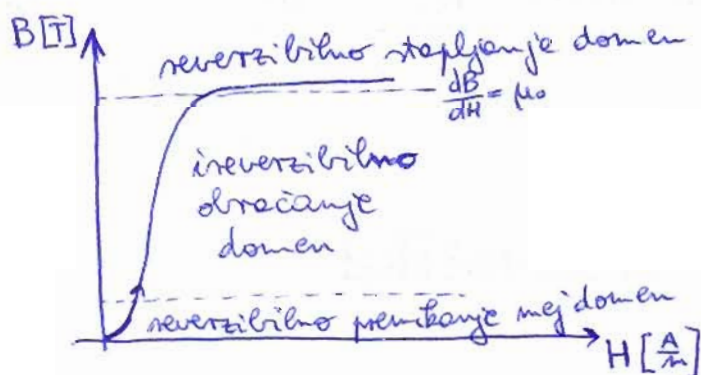 B [T]
reverzibilno stapljanje domen
dB/dH = μ₀
ireverzibilno
obračanje
domen
reverzibilno premikanje mej domen
H [A/m]